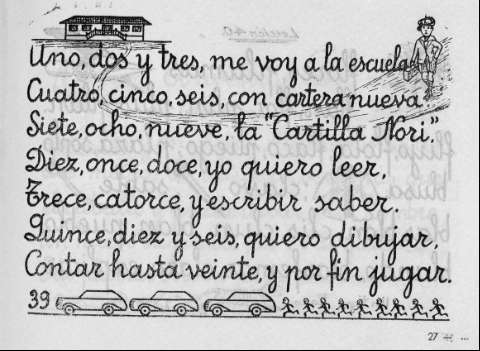 Uno, dos y tres, me voy a la escuela
Cuatro, cinco, seis, con cartera nueva
Siete, ocho, nueve, la "Cartilla Nori".
Diez, once, doce, yo quiero leer,
Trece, catorce, y escribir saber.
Quince, diez y seis, quiero dibujar,
Contar hasta veinte, y por fin jugar.
39
27